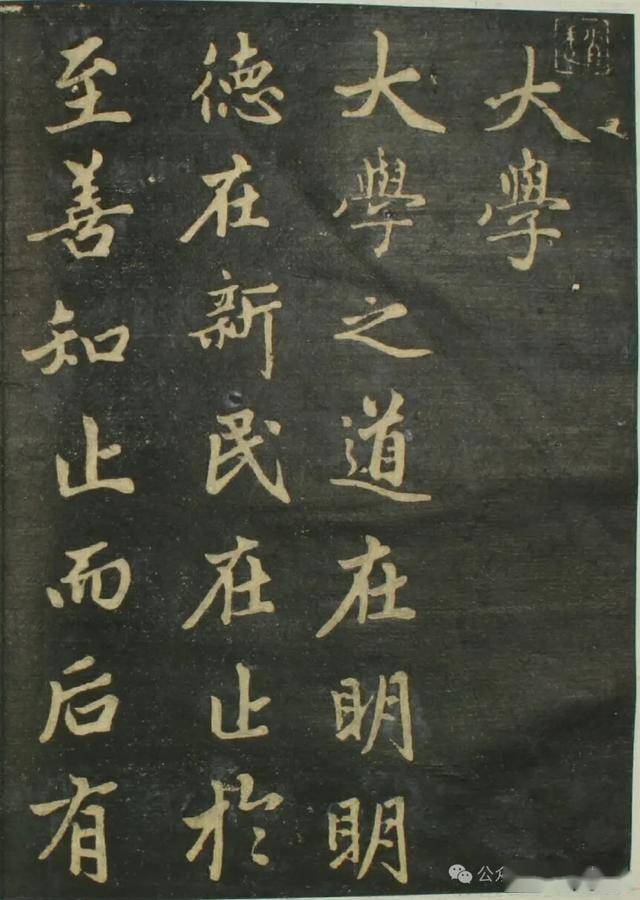 大學
大學之道在明明
德在新民在止於
至善知止而后有
公众